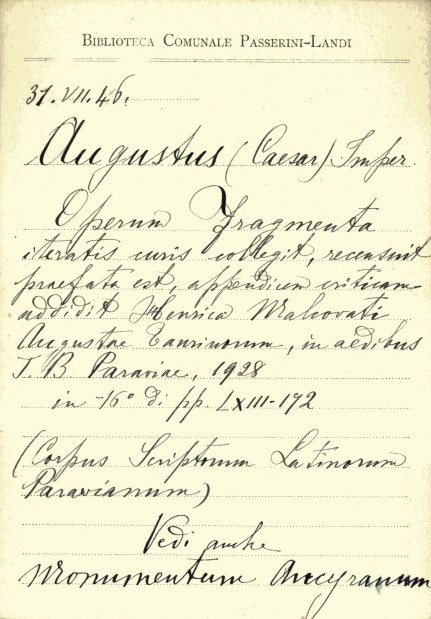 BIBLIOTECA COMUNALE PASSERINI-LANDI
31.VII.46.
Augustus (Caesar) Imper.
Operum Fragmenta
iteratis curis collegit, recensuit
praefata est, appendicem criticam
addidit Henrica Malcovati
Augustae Taurinorum, in aedibus
J. B. Paraviae, 1928
in -16° di pp. LXIII-172
(Corpus Scriptorum Latinorum
Paravianum)
Vedi anche
Monumentum Ancyranum